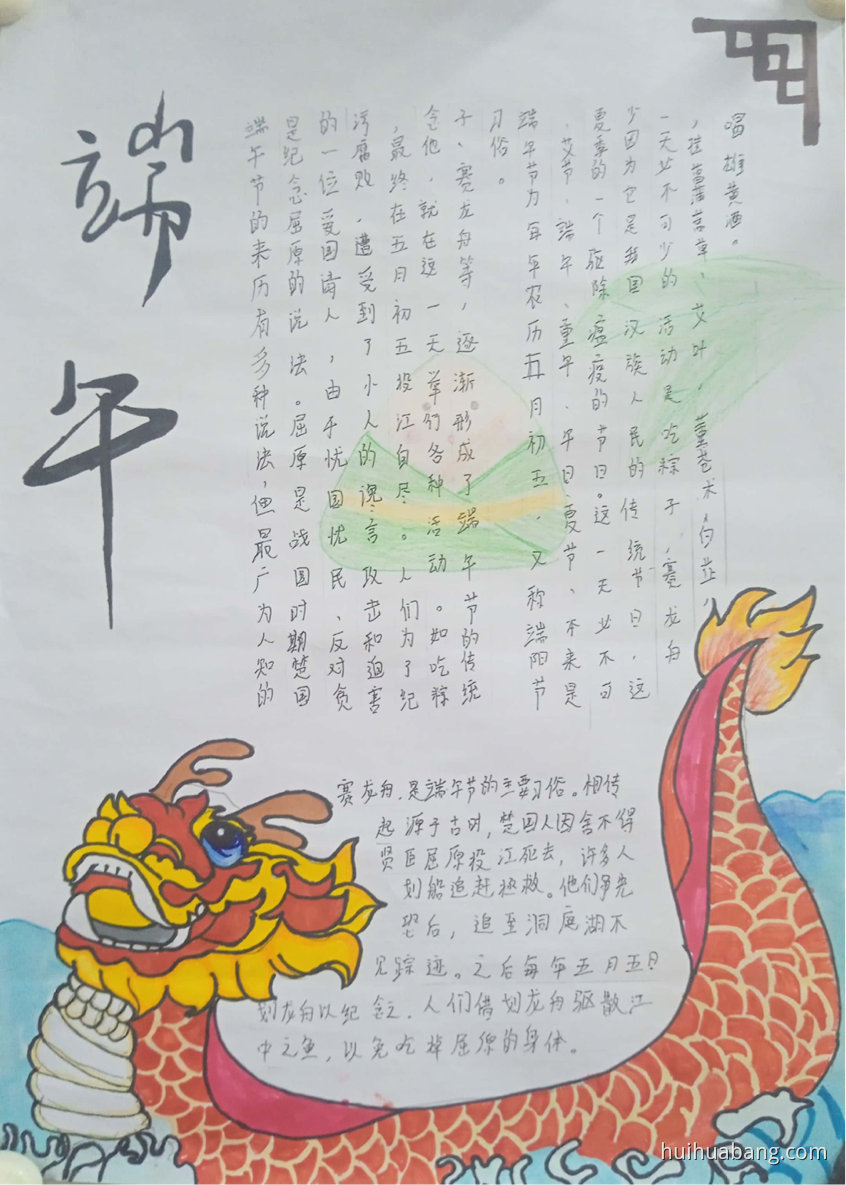 端午
端午节的来历有多种说法，但最广为人知的
是纪念屈原的说法。屈原是战国时期楚国
的一位爱国诗人，由于忧国忧民、反对贪
污腐败，遭受到了小人的谗言攻击和迫害
，最终在五月初五投江自尽。人们为了纪
念他，就在这一天举行各种活动。如吃粽
子、赛龙舟等，逐渐形成了端午节的传统
习俗。
端午节为每年农历五月初五，又称端阳节
、艾节、端午、重午、午日夏节、本来是
夏季的一个驱除瘟疫的节日。这一天必不可
少因为它是我国汉族人民的传统节日，这
一天必不可少的活动是吃粽子，赛龙舟
，挂菖蒲蒿草、艾叶，薰苍术，白芷，
喝雄黄酒。
赛龙舟，是端午节的主要习俗。相传
起源于古时，楚国人因舍不得
贤臣屈原投江死去，许多人
划船追赶拯救。他们争先
恐后，追至洞庭湖不
见踪迹。之后每年五月五日
划龙舟以纪念之。人们借划龙舟驱散江
中之鱼，以免吃掉屈原的身体。
huihuabang.com